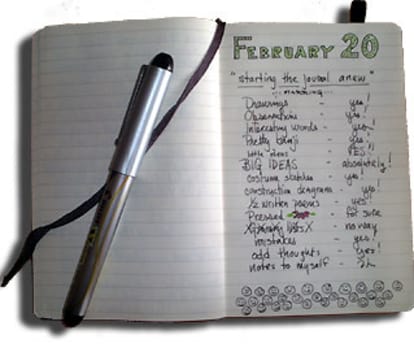 FEBRUARY 20
"starting the journal anew"
Drawings - yes!
Observations - yes!
Interesting words - yes!
Pretty - yes!
little ideas - YES!
BIG IDEAS - absolutely!
costume sketches - yes!
construction diagrams - yes!
1/2 written poems - yes!
Pressed - for sure
lists X - no way
mistakes - yes!
odd thoughts - yes!
notes to myself -